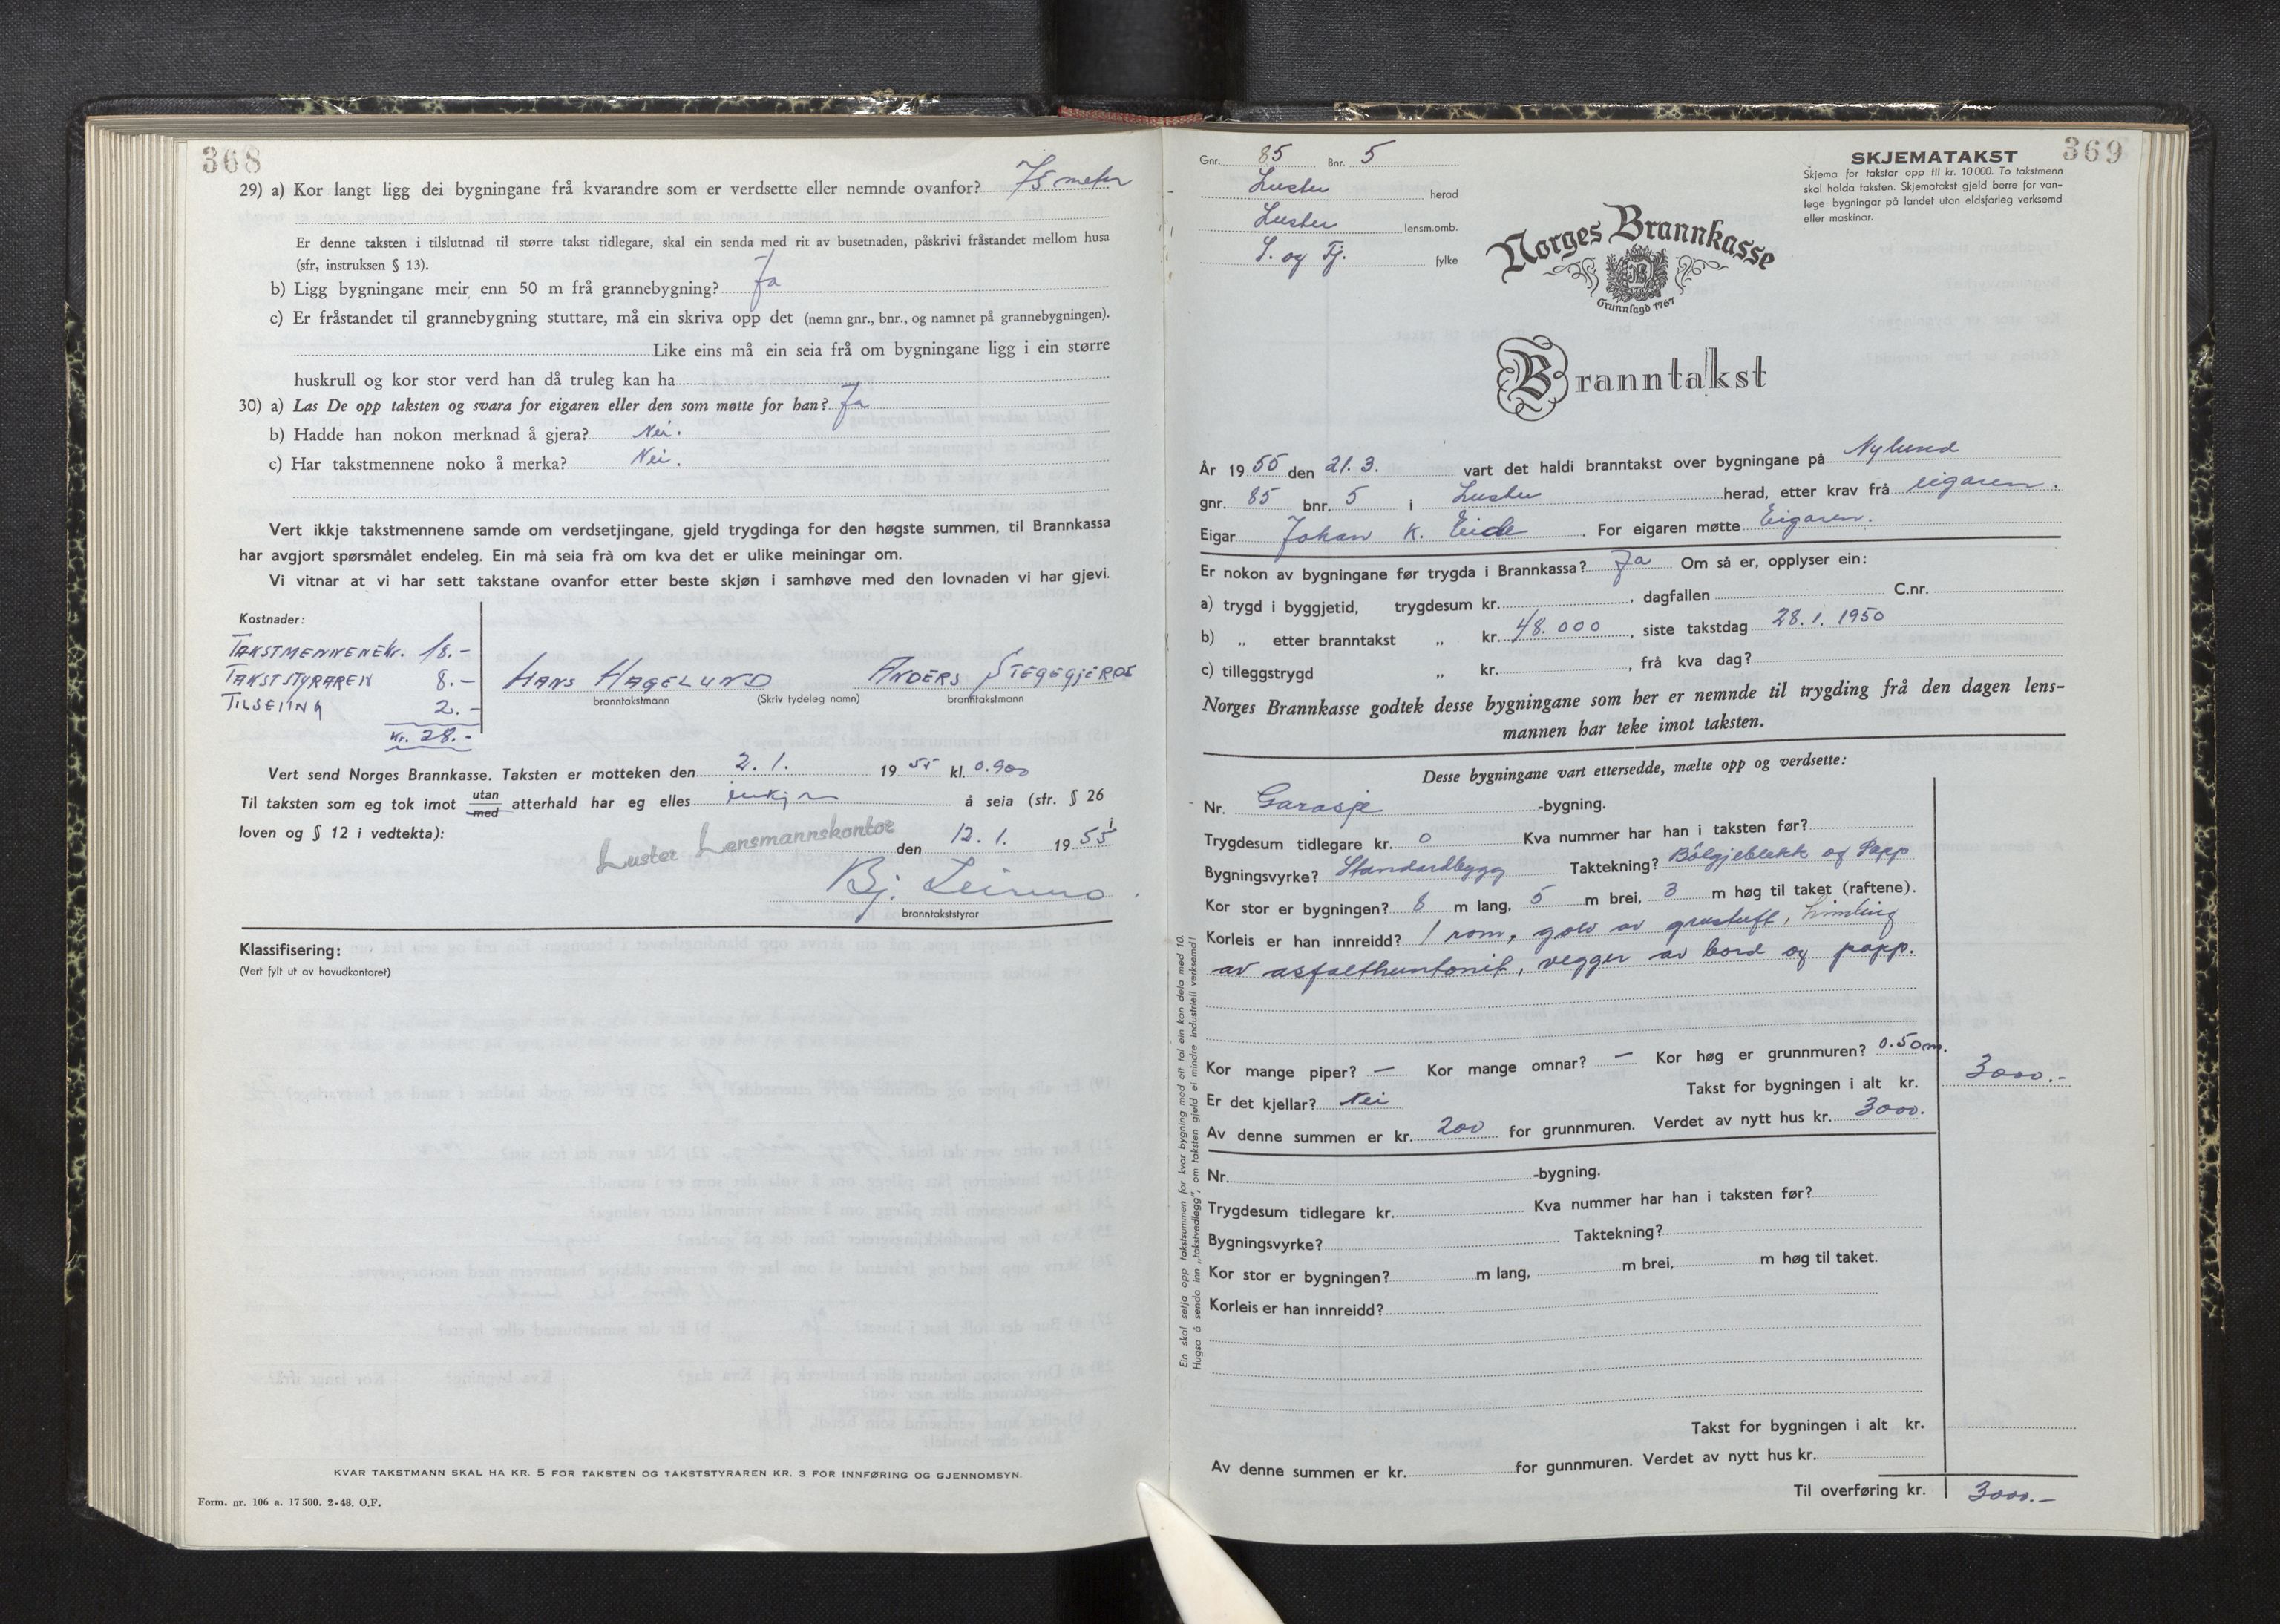 368
29) a) Kor langt ligg dei bygningane frå kvarandre som er verdsette eller nemnde ovanfor? 75 meter
Er denne taksten i tilslutnad til større takst tidlegare, skal ein senda med rit av busetnaden, påskrivi fråstandet mellom husa
(sfr, instruksen § 13).
b) Ligg bygningane meir enn 50 m frå grannebygning? Ja
c) Er fråstandet til grannebygning stuttare, må ein skriva opp det (nemn gnr., bnr., og namnet på grannebygningen).
Like eins må ein seia frå om bygningane ligg i ein større
huskrull og kor stor verd han då truleg kan ha
30) a) Las De opp taksten og svara for eigaren eller den som møtte for han? Ja
b) Hadde han nokon merknad å gjera? Nei.
c) Har takstmennene noko å merka? Nei.
Vert ikkje takstmennene samde om verdsetjingane, gjeld trygdinga for den høgste summen, til Brannkassa
har avgjort spørsmålet endeleg. Ein må seia frå om kva det er ulike meiningar om.
Vi vitnar at vi har sett takstane ovanfor etter beste skjøn i samhøve med den lovnaden vi har gjevi.
Kostnader:
TAKSTMENNENE Kr. 18.-
TAKSTSTYRAREN 8.-
TILSEIING 2.-
Kr. 28.-
HANS HAGELUND ANDERS STEGEGJERDE
branntakstmann (Skriv tydeleg namn) branntakstmann
Vert send Norges Brannkasse. Taksten er motteken den 2. 1. 19 55 kl. 0.900
Til taksten som eg tok imot utan/med atterhald har eg elles inkje å seia (sfr. § 26
loven og § 12 i vedtekta):
Luster Lensmannskontor den 12. 1. 19 55
Bj. Leirmo
branntakststyrar
Klassifisering:
(Vert fylt ut av hovudkontoret)
KVAR TAKSTMANN SKAL HA KR. 5 FOR TAKSTEN OG TAKSTSTYRAREN KR. 3 FOR INNFØRING OG GJENNOMSYN.
Form. nr. 106 a. 17 500. 2-48. O.F.
369
SKJEMATAKST
Skjema for takstar opp til kr. 10 000. To takstmenn
skal halda taksten. Skjematakst gjeld berre for van-
lege bygningar på landet utan eldsfarleg verksemd
eller maskinar.
Gnr. 85 Bnr. 5
Luster herad
Luster lensm.omb.
S. og Fj. fylke
Norges Brannkasse
Grunnlagd 1767
Branntakst
År 19 55 den 21. 3. vart det haldi branntakst over bygningane på Nylund
gnr. 85 bnr. 5 i Luster herad, etter krav frå eigaren.
Eigar Johan K. Eide. For eigaren møtte Eigaren.
Er nokon av bygningane før trygda i Brannkassa? Ja Om så er, opplyser ein:
a) trygd i byggjetid, trygdesum kr. , dagfallen C.nr.
b) „ etter branntakst „ kr. 48.000, siste takstdag 28. 1. 1950
c) tilleggstrygd „ kr. , frå kva dag?
Norges Brannkasse godtek desse bygningane som her er nemnde til trygding frå den dagen lens-
mannen har teke imot taksten.
Desse bygningane vart ettersedde, mælte opp og verdsette:
Nr. Garasje -bygning.
Trygdesum tidlegare kr. 0 Kva nummer har han i taksten før?
Bygningsvyrke? Standardbygg Taktekning? Bölgjeblekk og Papp
Kor stor er bygningen? 8 m lang, 5 m brei, 3 m høg til taket (raftene).
Korleis er han innreidd? 1 rom, golv av grustuft, himling
av asfalthuntonit, vegger av bord og papp.
Kor mange piper? — Kor mange omnar? — Kor høg er grunnmuren? 0.50 m.
Er det kjellar? Nei Takst for bygningen i alt kr. 3000.-
Av denne summen er kr. 200 for grunnmuren. Verdet av nytt hus kr. 3000.
Nr. -bygning.
Trygdesum tidlegare kr. Kva nummer har han i taksten før?
Bygningsvyrke? Taktekning?
Kor stor er bygningen? m lang, m brei, m høg til taket.
Korleis er han innreidd?
Takst for bygningen i alt kr.
Av denne summen er kr. for gunnmuren. Verdet av nytt hus kr.
Til overføring kr. 3000.-
Ein skal setja opp takstsummen for kvar bygning med eit tal ein kan dela med 10.
Hugsa å senda inn „takstvedlegg", om taksten gjeld ei mindre industriell verksemd!